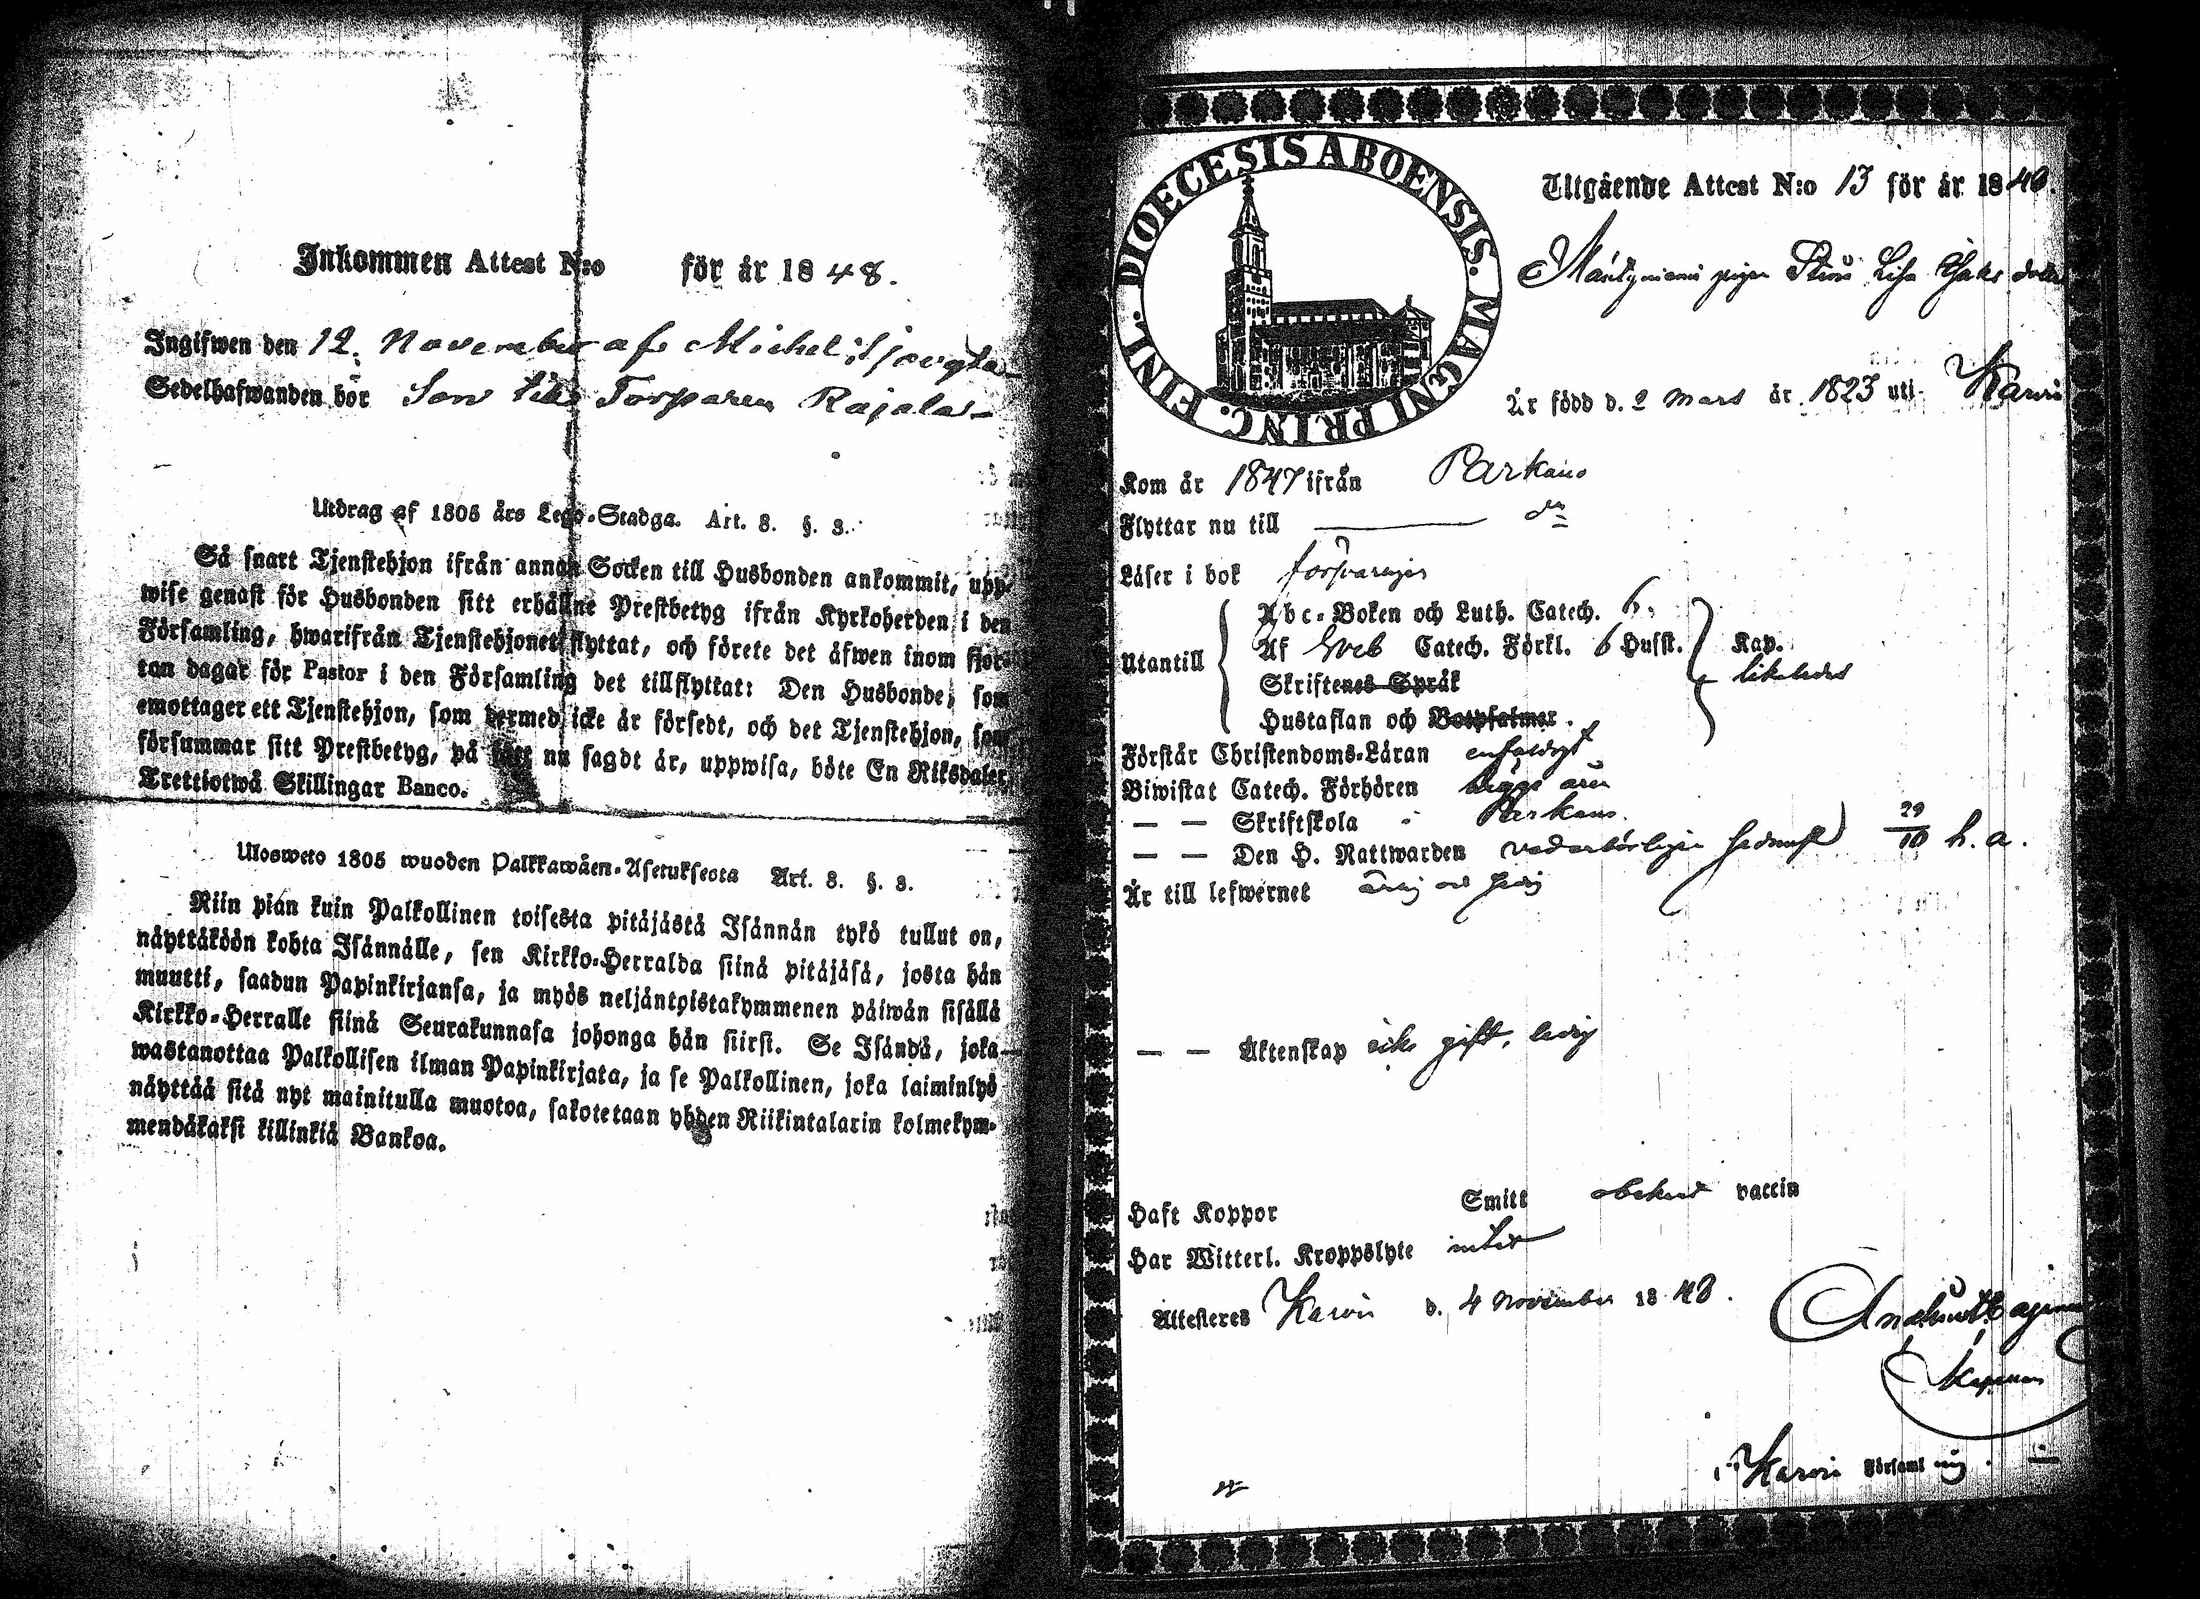 Inkommen Attest N:o för år 1848.
Ingifwen den 12 November af Michel
Sedelhafwanden bör Torparen Rajala
Utdrag af 1805 års Lego-Stadga. Art. 3. §. 3.
Så snart Tjenstehjon ifrån annan Socken till Husbonden ankommit, upp-
wise genast för Husbonden sitt erhållne Prestbetyg ifrån Kyrkoherden i den
Församling, hwarifrån Tjenstehjonet flyttat, och förete det äfwen inom fjor-
ton dagar för Pastor i den Församling det tillflyttat: Den Husbonde, som
emottager ett Tjenstehjon, som dermed icke är försedt, och det Tjenstehjon, som
försummar sitt Prestbetyg, på sätt nu sagdt är, uppwisa, böte En Riksdaler
Trettiotwå Skillingar Banco.
Ulosweto 1805 wuoden Palkkawäen-Asetuksesta Art. 3. §. 3.
Niin pian kuin Palkollinen toisesta pitäjästä Isännän tykö tullut on,
näyttäköön kohta Isännälle, sen Kirkko-Herralda siinä pitäjäsä, josta hän
muutti, saadun Papinkirjansa, ja myös neljäntoistakymmenen päiwän sisällä
Kirkko-Herralle siinä Seurakunnasa johonga hän siirsi. Se Isändä, joka
wastanottaa Palkollisen ilman Papinkirjata, ja se Palkollinen, joka laiminlyö
näyttää sitä nyt mainitulla muotoa, sakotetaan yhden Riikintalarin kolmekym-
mendäkaksi killinkiä Bankoa.
DIOECESIS ABOENSIS. MAGNI PRINC. FINL.
Utgående Attest N:o 13 för år 1848.
pigan Lisa
Är född d. 2 Mars år 1823 uti Karvi
Kom år 1847 ifrån Parkano
Flyttar nu till
Läser i bok försvarligen
Utantill
Abc-Boken och Luth. Catech. 6.
Af Sveb Catech. Förkl. 6 Husst. Kap.
Skriftenes Språk likaledes
Hustaflan och Botpsalmer.
Förstår Christendoms-Läran enfaldigt
Biwistat Catech. Förhören
— — Skriftskola i Parkano.
— — Den H. Nattwarden vederbörligen 29/10 h. a.
Är till lefwernet ärlig och
— — Äktenskap gift, ledig
Haft Koppor Smitt vaccin
Har Witterl. Kroppslyte intet
Attesteres Karvi d. 4 November 1848.
Kapellan
i Karvi Församling.